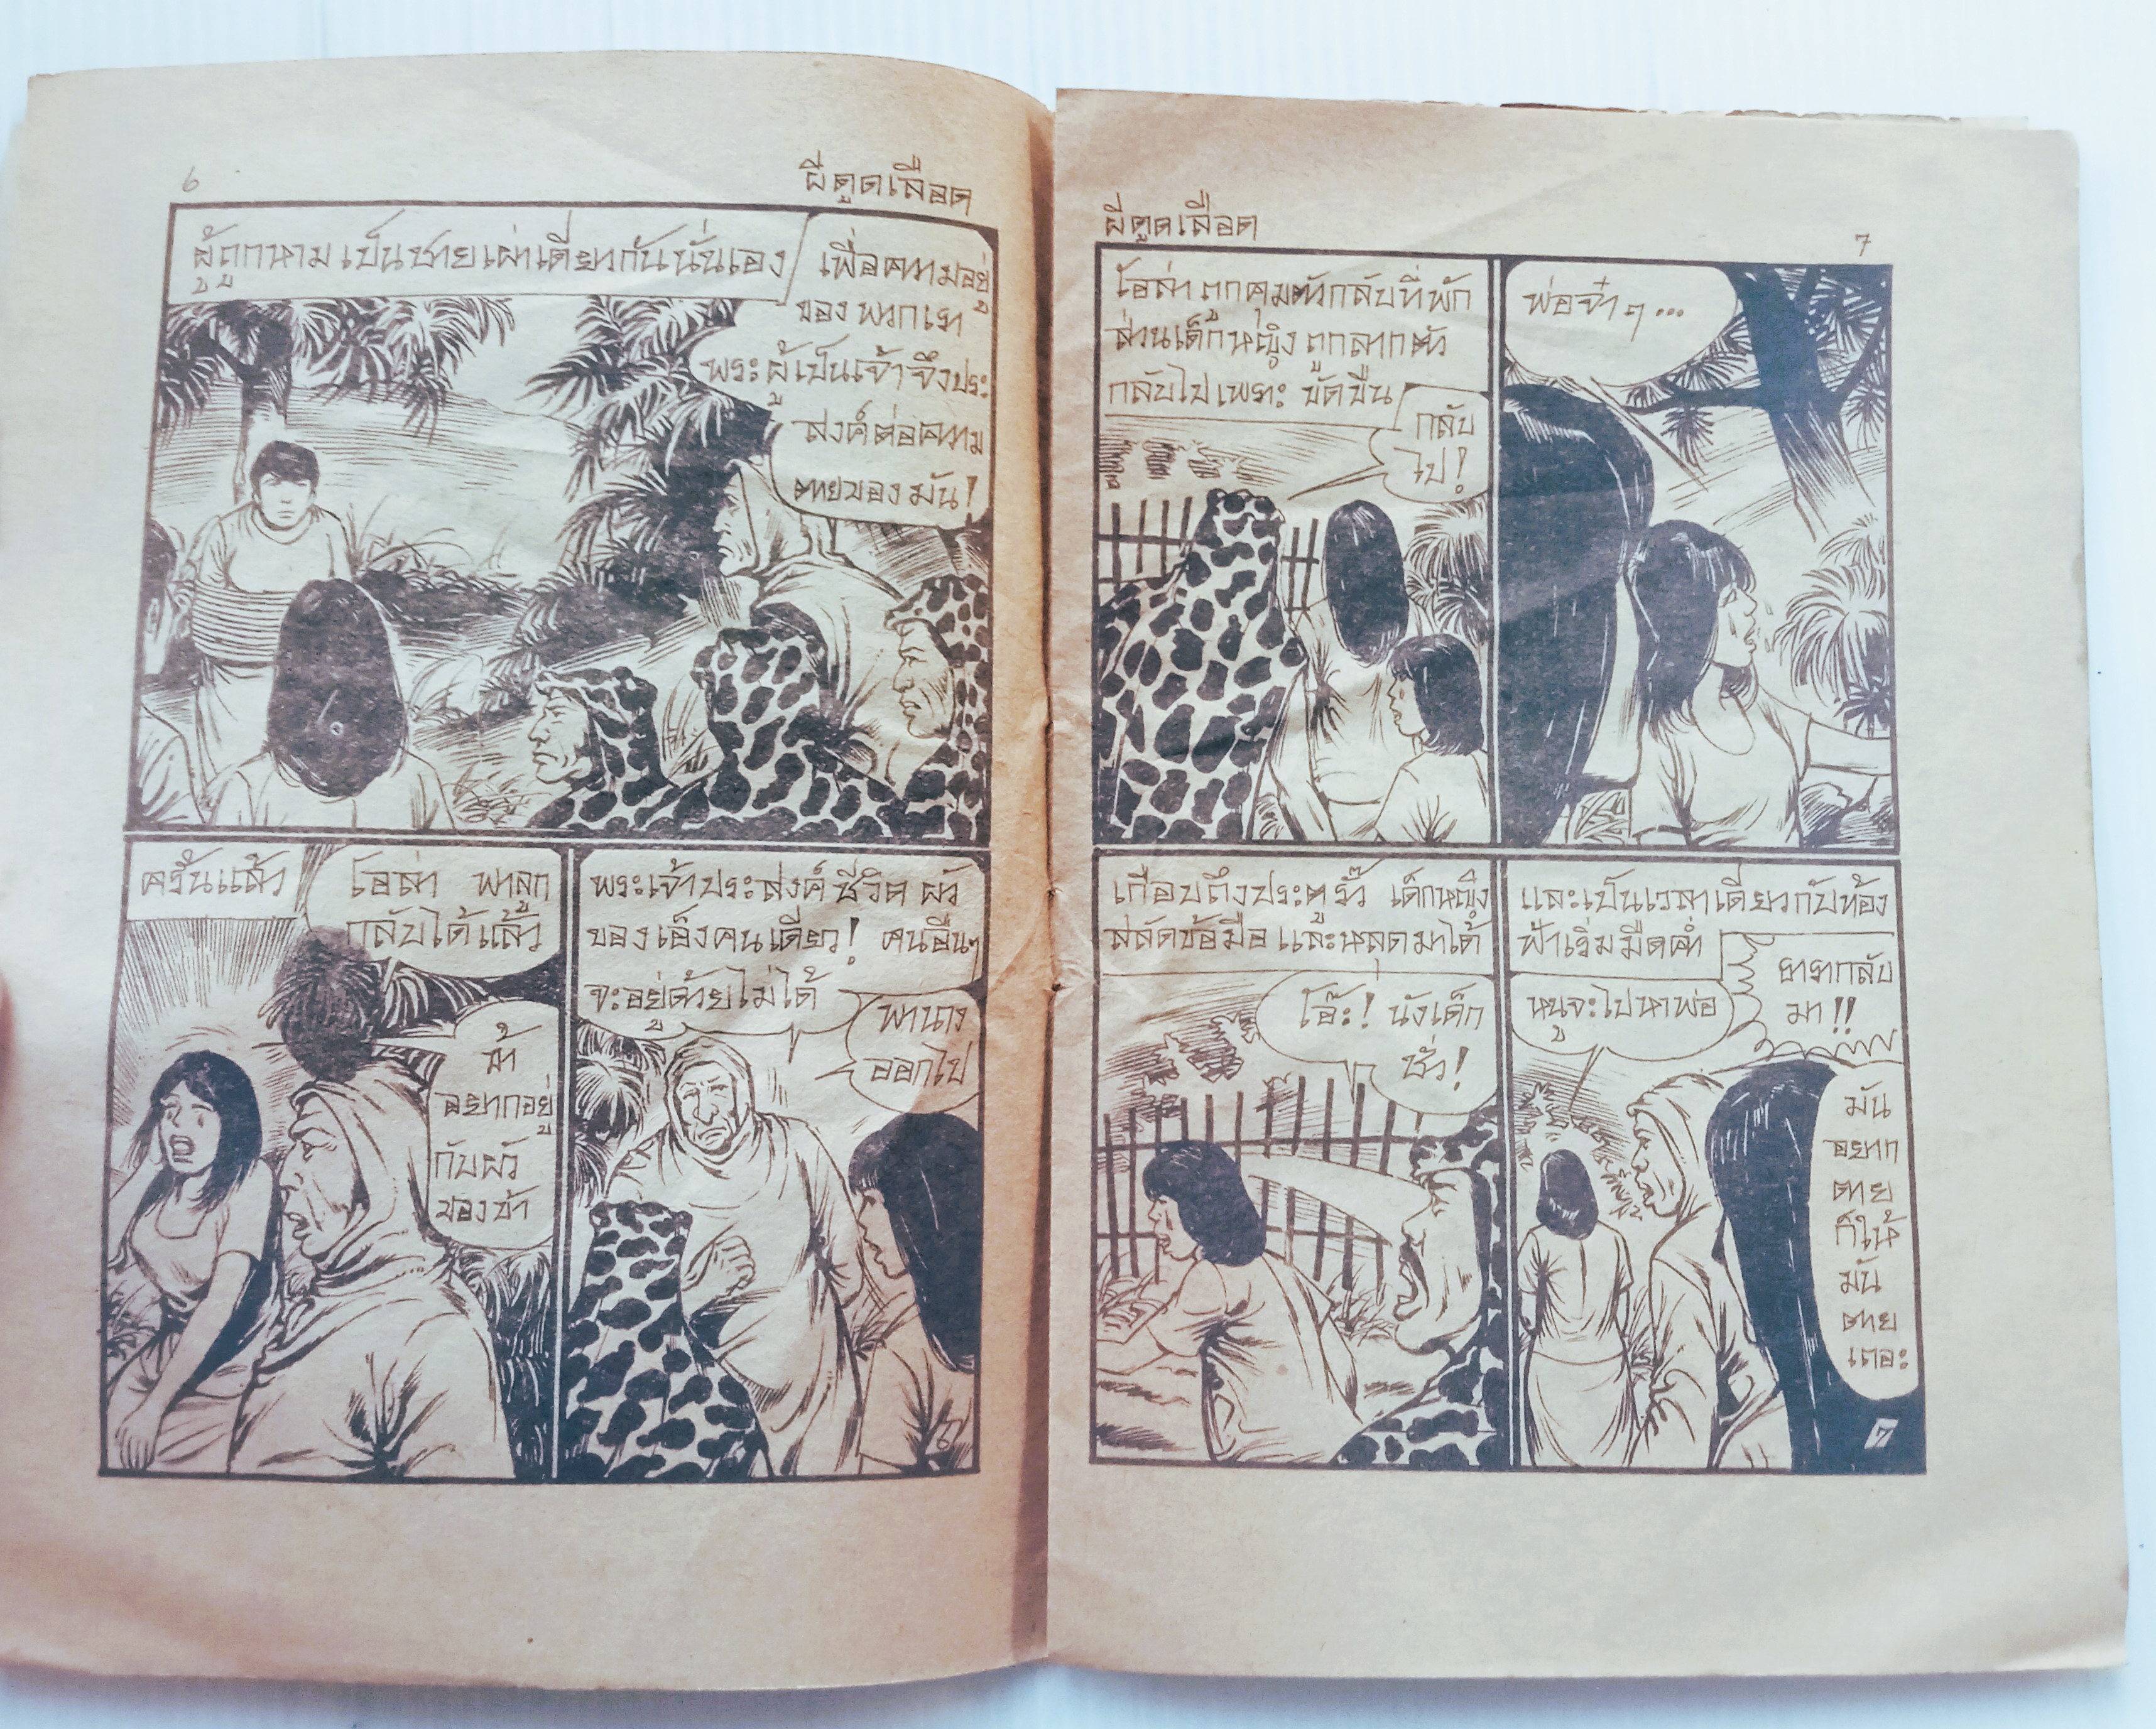 ๖
ผีดูดเลือด
ผู้ถูกหามเป็นชายเผ่าเดียวกันนั่นเอง
เพื่อความอยู่
ของพวกเรา
พระผู้เป็นเจ้าจึงประ
สงค์ต่อความ
ตายของมัน!
ครั้นแล้ว
โอล่า พาลูก
กลับได้แล้ว
ข้า
อยากอยู่
กับผัว
ของข้า
พระเจ้าประสงค์ชีวิตผัว
ของเอ็งคนเดียว! คนอื่นๆ
จะอยู่ด้วยไม่ได้
พานาง
ออกไป
6
ผีดูดเลือด
7
โอล่าถูกคุมตัวกลับที่พัก
ส่วนเด็กหญิงถูกลากตัว
กลับไปเพราะขัดขืน
กลับ
ไป!
พ่อจ๋าๆ...
เกือบถึงประตูรั้ว เด็กหญิง
สลัดข้อมือและหลุดมาได้
โอ๊ะ! นังเด็ก
ชั่ว!
และเป็นเวลาเดียวกับท้อง
ฟ้าเริ่มมืดค่ำ
หนูจะไปหาพ่อ
ยารากลับ
มา!!
มัน
อยาก
ตาย
ก็ให้
มัน
ตาย
เถอะ
7